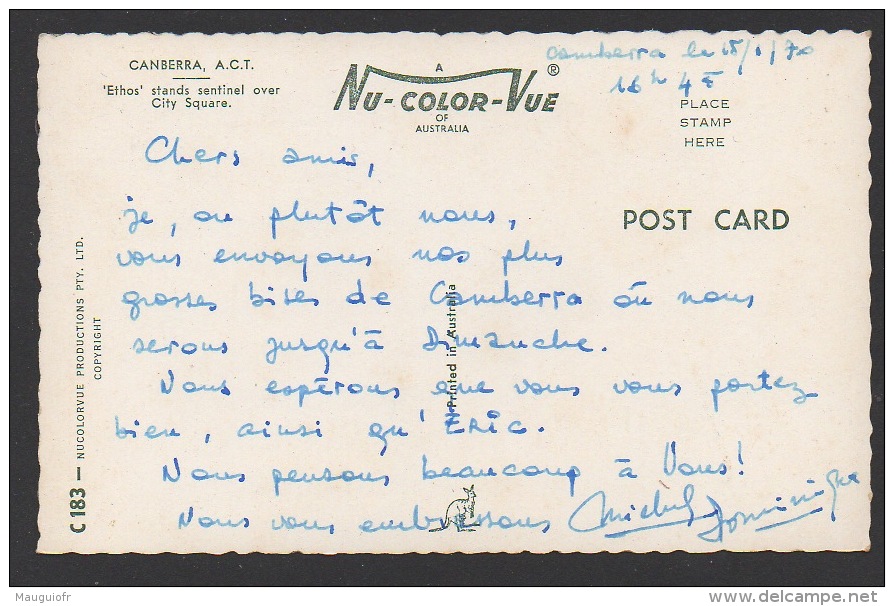 CANBERRA, A.C.T.
'Ethos' stands sentinel over
City Square.
A
NU-COLOR-VUE ®
OF
AUSTRALIA
Camberra le 15/1/70
16h 45
PLACE
STAMP
HERE
POST CARD
Chers amis,
je, ou plutôt nous,
vous envoyons nos plus
grosses bises de Camberra où nous
serons jusqu'à Dimanche.
Nous espérons que vous vous portez
bien, ainsi qu'ÉRIC.
Nous pensons beaucoup à Vous!
Nous vous embrassons Michel Dominique
C 183 — NUCOLORVUE PRODUCTIONS PTY. LTD.
COPYRIGHT
Printed in Australia
Mauguiofr
www.delcampe.net